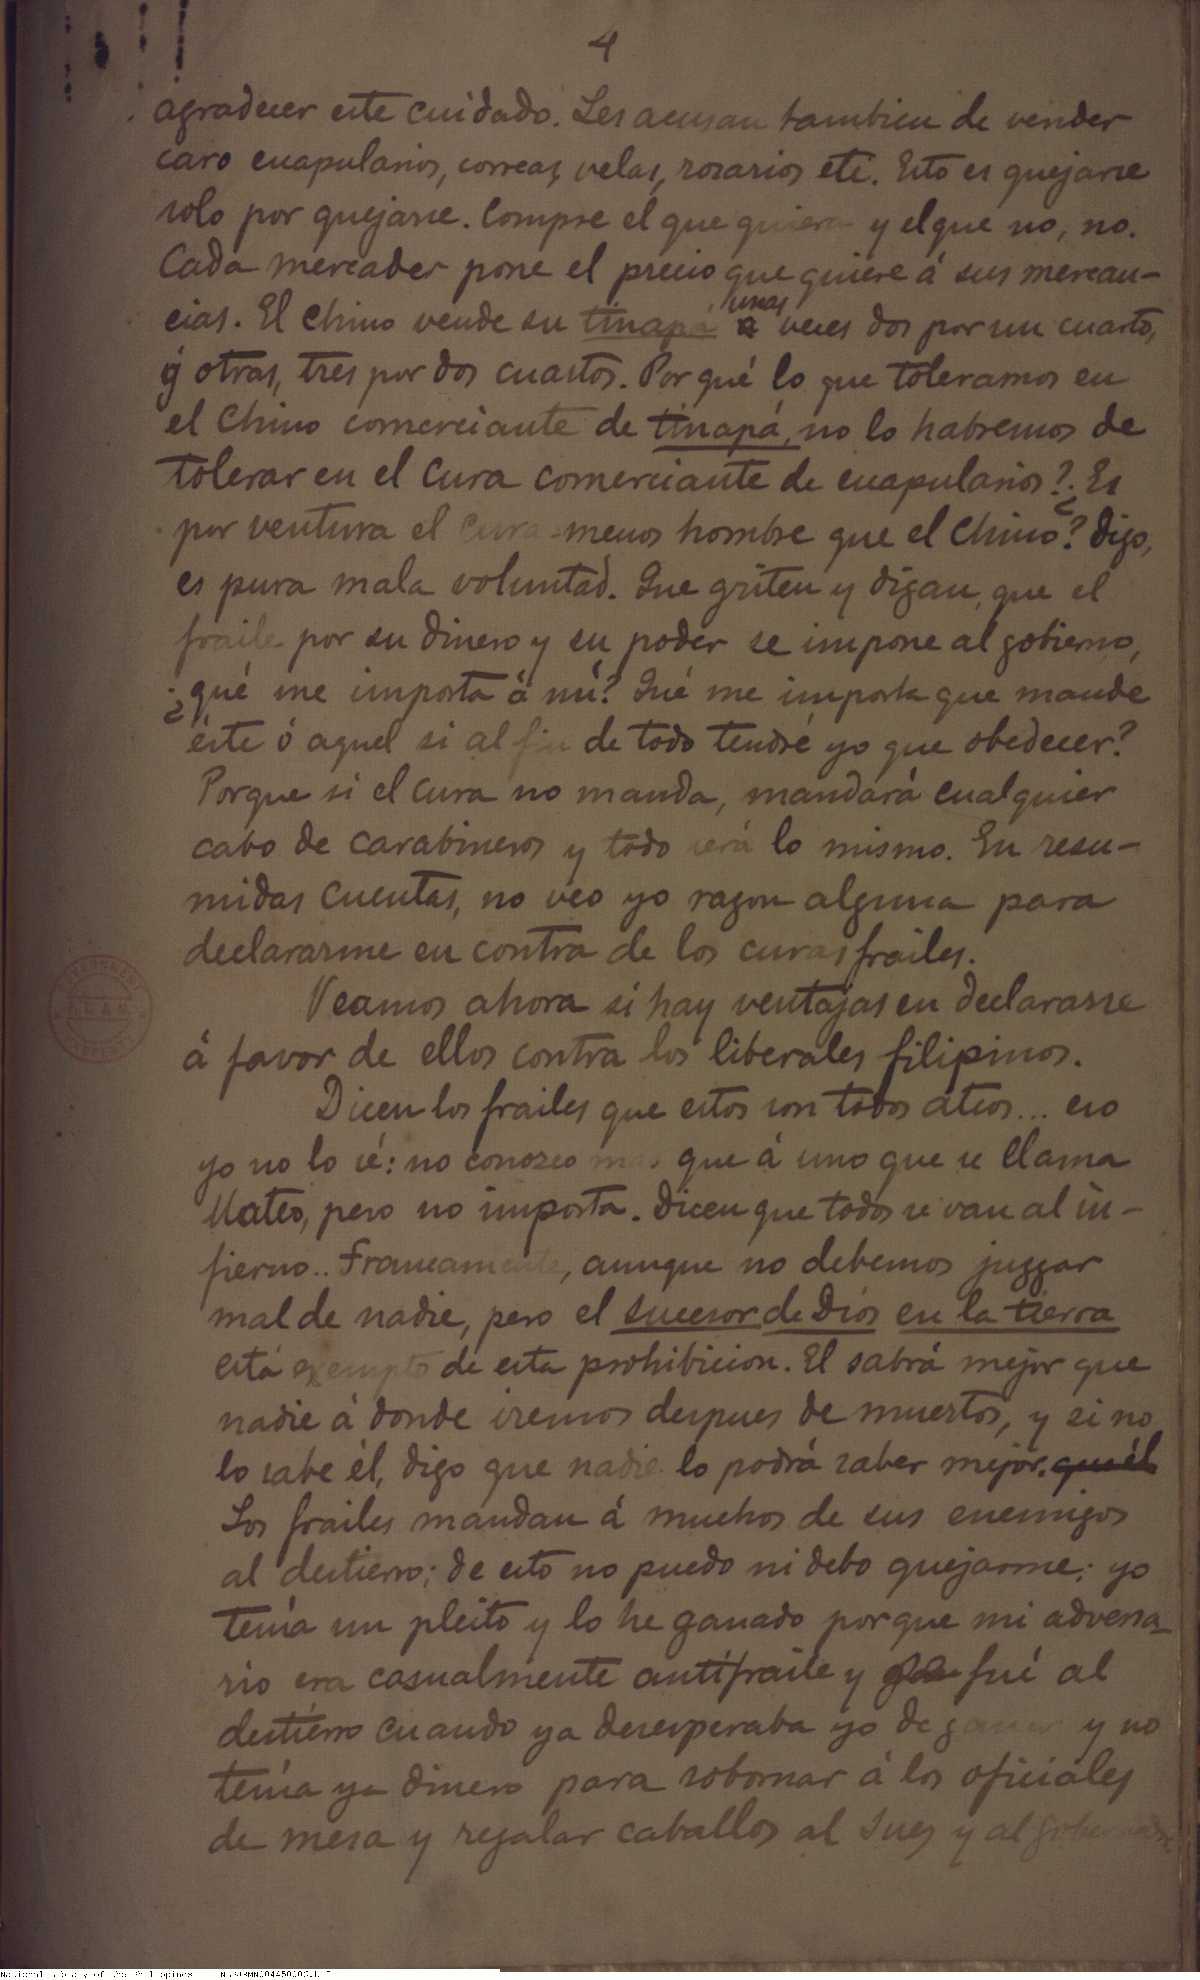 4
agradecer este cuidado. Les acusan tambien de vender
caro escapularios, correas, velas, rosarios etc. Esto es quejarse
solo por quejarse. Compre el que quiera y el que no, no.
Cada mercader pone el precio que quiere á sus mercan-
cias. El Chino vende su tinapá unas veces dos por un cuarto,
y otras, tres por dos cuartos. Por qué lo que toleramos en
el Chino comerciante de tinapá, no lo habremos de
tolerar en el cura comerciante de escapularios? ¿Es
por ventura el cura menos hombre que el Chino? Digo,
es pura mala voluntad. Que griten y digan, que el
fraile por su dinero y su poder se impone al gobierno,
¿qué me importa á mí? Qué me importa que mande
éste ó aquel si al fin de todo tendré yo que obedecer?
Porque si el cura no manda, mandará cualquier
cabo de carabineros y todo será lo mismo. En resu-
midas cuentas, no veo yo razon alguna para
declararme en contra de los curas frailes.
Veamos ahora si hay ventajas en declararse
á favor de ellos contra los liberales filipinos.
Dicen los frailes que estos son todos ateos... eso
yo no lo sé: no conozco mas que á uno que se llama
Mateo, pero no importa. Dicen que todos se van al in-
fierno.. Francamente, aunque no debemos juzgar
mal de nadie, pero el sucesor de Dios en la tierra
está exempto de esta prohibicion. El sabrá mejor que
nadie á donde iremos despues de muertos, y si no
lo sabe él, digo que nadie lo podrá saber mejor. que él
Los frailes mandan á muchos de sus enemigos
al destierro; de esto no puedo ni debo quejarme; yo
tenía un pleito y lo he ganado porque mi adversa-
rio era casualmente antifraile y fué al
destierro cuando ya desesperaba yo de ganar y no
tenía ya dinero para sobornar á los oficiales
de mesa y regalar caballos al Juez y al gobernador
National Library of the Philippines